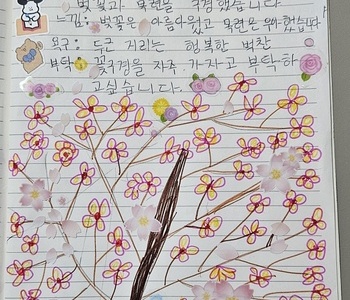 벚꽃과 목련을 구경했습니다
느낌: 벚꽃은 아름다웠고 목련은
욕구: 두근 거리는 행복한 벅찬
부탁: 꽃경을 자주 가자고 부탁하
고싶습니다.